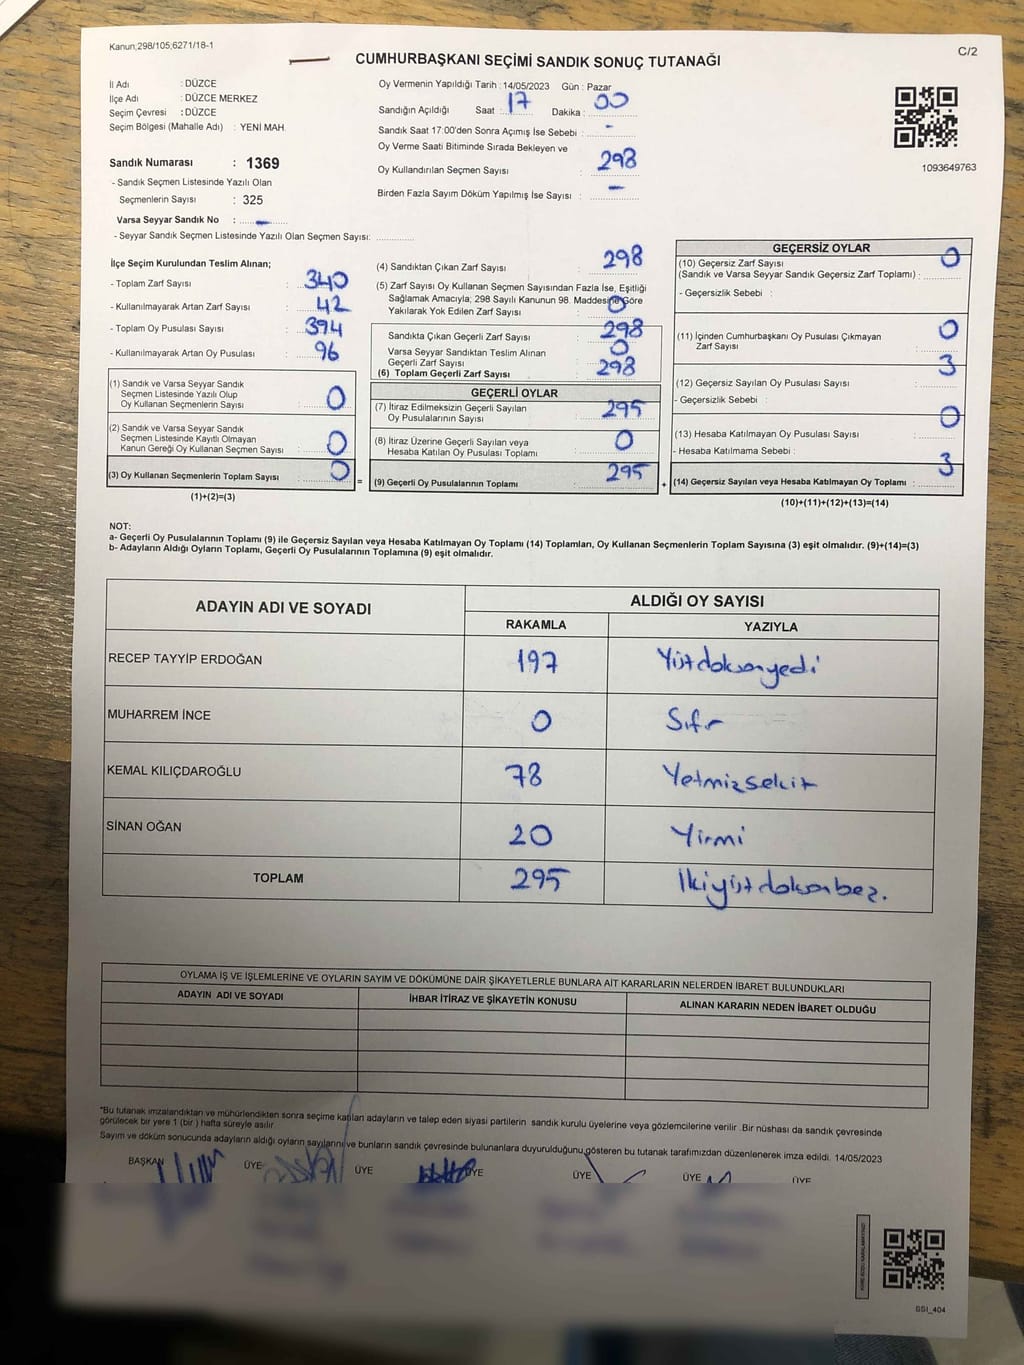 Kanun;298/105;6271/18-1
C/2
CUMHURBAŞKANI SEÇİMİ SANDIK SONUÇ TUTANAĞI
İl Adı : DÜZCE
İlçe Adı : DÜZCE MERKEZ
Seçim Çevresi : DÜZCE
Seçim Bölgesi (Mahalle Adı) : YENİ MAH.
Sandık Numarası : 1369
- Sandık Seçmen Listesinde Yazılı Olan
Seçmenlerin Sayısı : 325
Varsa Seyyar Sandık No : -
- Seyyar Sandık Seçmen Listesinde Yazılı Olan Seçmen Sayısı:
Oy Vermenin Yapıldığı Tarih : 14/05/2023 Gün : Pazar
Sandığın Açıldığı Saat : 17 Dakika : 00
Sandık Saat 17:00'den Sonra Açımış İse Sebebi : -
Oy Verme Saati Bitiminde Sırada Bekleyen ve
Oy Kullandırılan Seçmen Sayısı : 298
Birden Fazla Sayım Döküm Yapılmış İse Sayısı : -
1093649763
İlçe Seçim Kurulundan Teslim Alınan;
- Toplam Zarf Sayısı : 340
- Kullanılmayarak Artan Zarf Sayısı : 42
- Toplam Oy Pusulası Sayısı : 394
- Kullanılmayarak Artan Oy Pusulası : 96
(1) Sandık ve Varsa Seyyar Sandık
Seçmen Listesinde Yazılı Olup
Oy Kullanan Seçmenlerin Sayısı : 0
(2) Sandık ve Varsa Seyyar Sandık
Seçmen Listesinde Kayıtlı Olmayan
Kanun Gereği Oy Kullanan Seçmen Sayısı : 0
(3) Oy Kullanan Seçmenlerin Toplam Sayısı : 0
(1)+(2)=(3)
=
(4) Sandıktan Çıkan Zarf Sayısı : 298
(5) Zarf Sayısı Oy Kullanan Seçmen Sayısından Fazla İse, Eşitliği
Sağlamak Amacıyla; 298 Sayılı Kanunun 98. Maddesine Göre
Yakılarak Yok Edilen Zarf Sayısı : 0
Sandıkta Çıkan Geçerli Zarf Sayısı : 298
Varsa Seyyar Sandıktan Teslim Alınan
Geçerli Zarf Sayısı : 0
(6) Toplam Geçerli Zarf Sayısı : 298
GEÇERLİ OYLAR
(7) İtiraz Edilmeksizin Geçerli Sayılan
Oy Pusulalarının Sayısı : 295
(8) İtiraz Üzerine Geçerli Sayılan veya
Hesaba Katılan Oy Pusulası Toplamı : 0
(9) Geçerli Oy Pusulalarının Toplamı : 295
+
GEÇERSİZ OYLAR
(10) Geçersiz Zarf Sayısı
(Sandık ve Varsa Seyyar Sandık Geçersiz Zarf Toplamı) : 0
- Geçersizlik Sebebi :
(11) İçinden Cumhurbaşkanı Oy Pusulası Çıkmayan
Zarf Sayısı : 0
(12) Geçersiz Sayılan Oy Pusulası Sayısı : 3
- Geçersizlik Sebebi :
(13) Hesaba Katılmayan Oy Pusulası Sayısı : 0
- Hesaba Katılmama Sebebi :
(14) Geçersiz Sayılan veya Hesaba Katılmayan Oy Toplamı : 3
(10)+(11)+(12)+(13)=(14)
NOT:
a- Geçerli Oy Pusulalarının Toplamı (9) ile Geçersiz Sayılan veya Hesaba Katılmayan Oy Toplamı (14) Toplamları, Oy Kullanan Seçmenlerin Toplam Sayısına (3) eşit olmalıdır. (9)+(14)=(3)
b- Adayların Aldığı Oyların Toplamı, Geçerli Oy Pusulalarının Toplamına (9) eşit olmalıdır.
ADAYIN ADI VE SOYADI
ALDIĞI OY SAYISI
RAKAMLA YAZIYLA
RECEP TAYYİP ERDOĞAN 197 Yüzdoksanyedi
MUHARREM İNCE 0 Sıfır
KEMAL KILIÇDAROĞLU 78 Yetmizsekiz
SİNAN OĞAN 20 Yirmi
TOPLAM 295 İkiyüzdoksanbeş.
OYLAMA İŞ VE İŞLEMLERİNE VE OYLARIN SAYIM VE DÖKÜMÜNE DAİR ŞİKAYETLERLE BUNLARA AİT KARARLARIN NELERDEN İBARET BULUNDUKLARI
ADAYIN ADI VE SOYADI İHBAR İTİRAZ VE ŞİKAYETİN KONUSU ALINAN KARARIN NEDEN İBARET OLDUĞU
*Bu tutanak imzalandıktan ve mühürlendikten sonra seçime katılan adayların ve talep eden siyasi partilerin sandık kurulu üyelerine veya gözlemcilerine verilir .Bir nüshası da sandık çevresinde
görülecek bir yere 1 (bir ) hafta süreyle asılır.
Sayım ve döküm sonucunda adayların aldığı oyların sayılarını ve bunların sandık çevresinde bulunanlara duyurulduğunu gösteren bu tutanak tarafımızdan düzenlenerek imza edildi. 14/05/2023
BAŞKAN ÜYE ÜYE ÜYE ÜYE ÜYE ÜYE
SSI_404